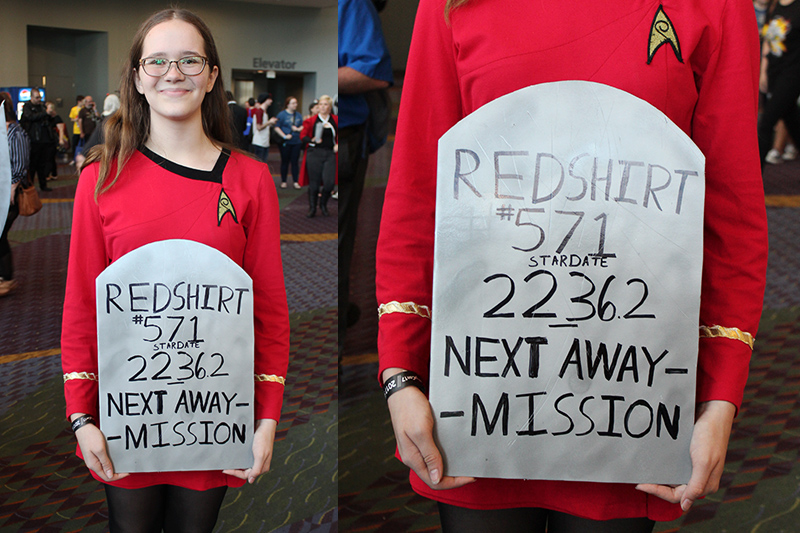 Elevator
REDSHIRT
#571
STARDATE
2236.2
NEXT AWAY-
-MISSION
REDSHIRT
#571
STARDATE
2236.2
NEXT AWAY-
-MISSION